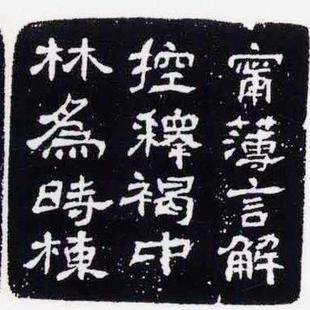 甯薄言解
控釋褐中
林為時棟